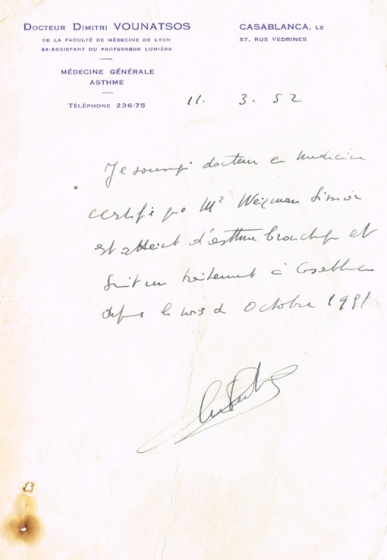 DOCTEUR DIMITRI VOUNATSOS
DE LA FACULTÉ DE MÉDECINE DE LYON
EX-ASSISTANT DU PROFESSEUR LUMIÈRE
MÉDECINE GÉNÉRALE
ASTHME
TÉLÉPHONE 236-75
CASABLANCA, LE
57, RUE VEDRINES
11. 3. 52
Je soussigné docteur en medecine
certifie que Mr Weizman Simon
est atteint d'asthme bronchique et
suit un traitement à Casablanca
depuis le mois d Octobre 1951